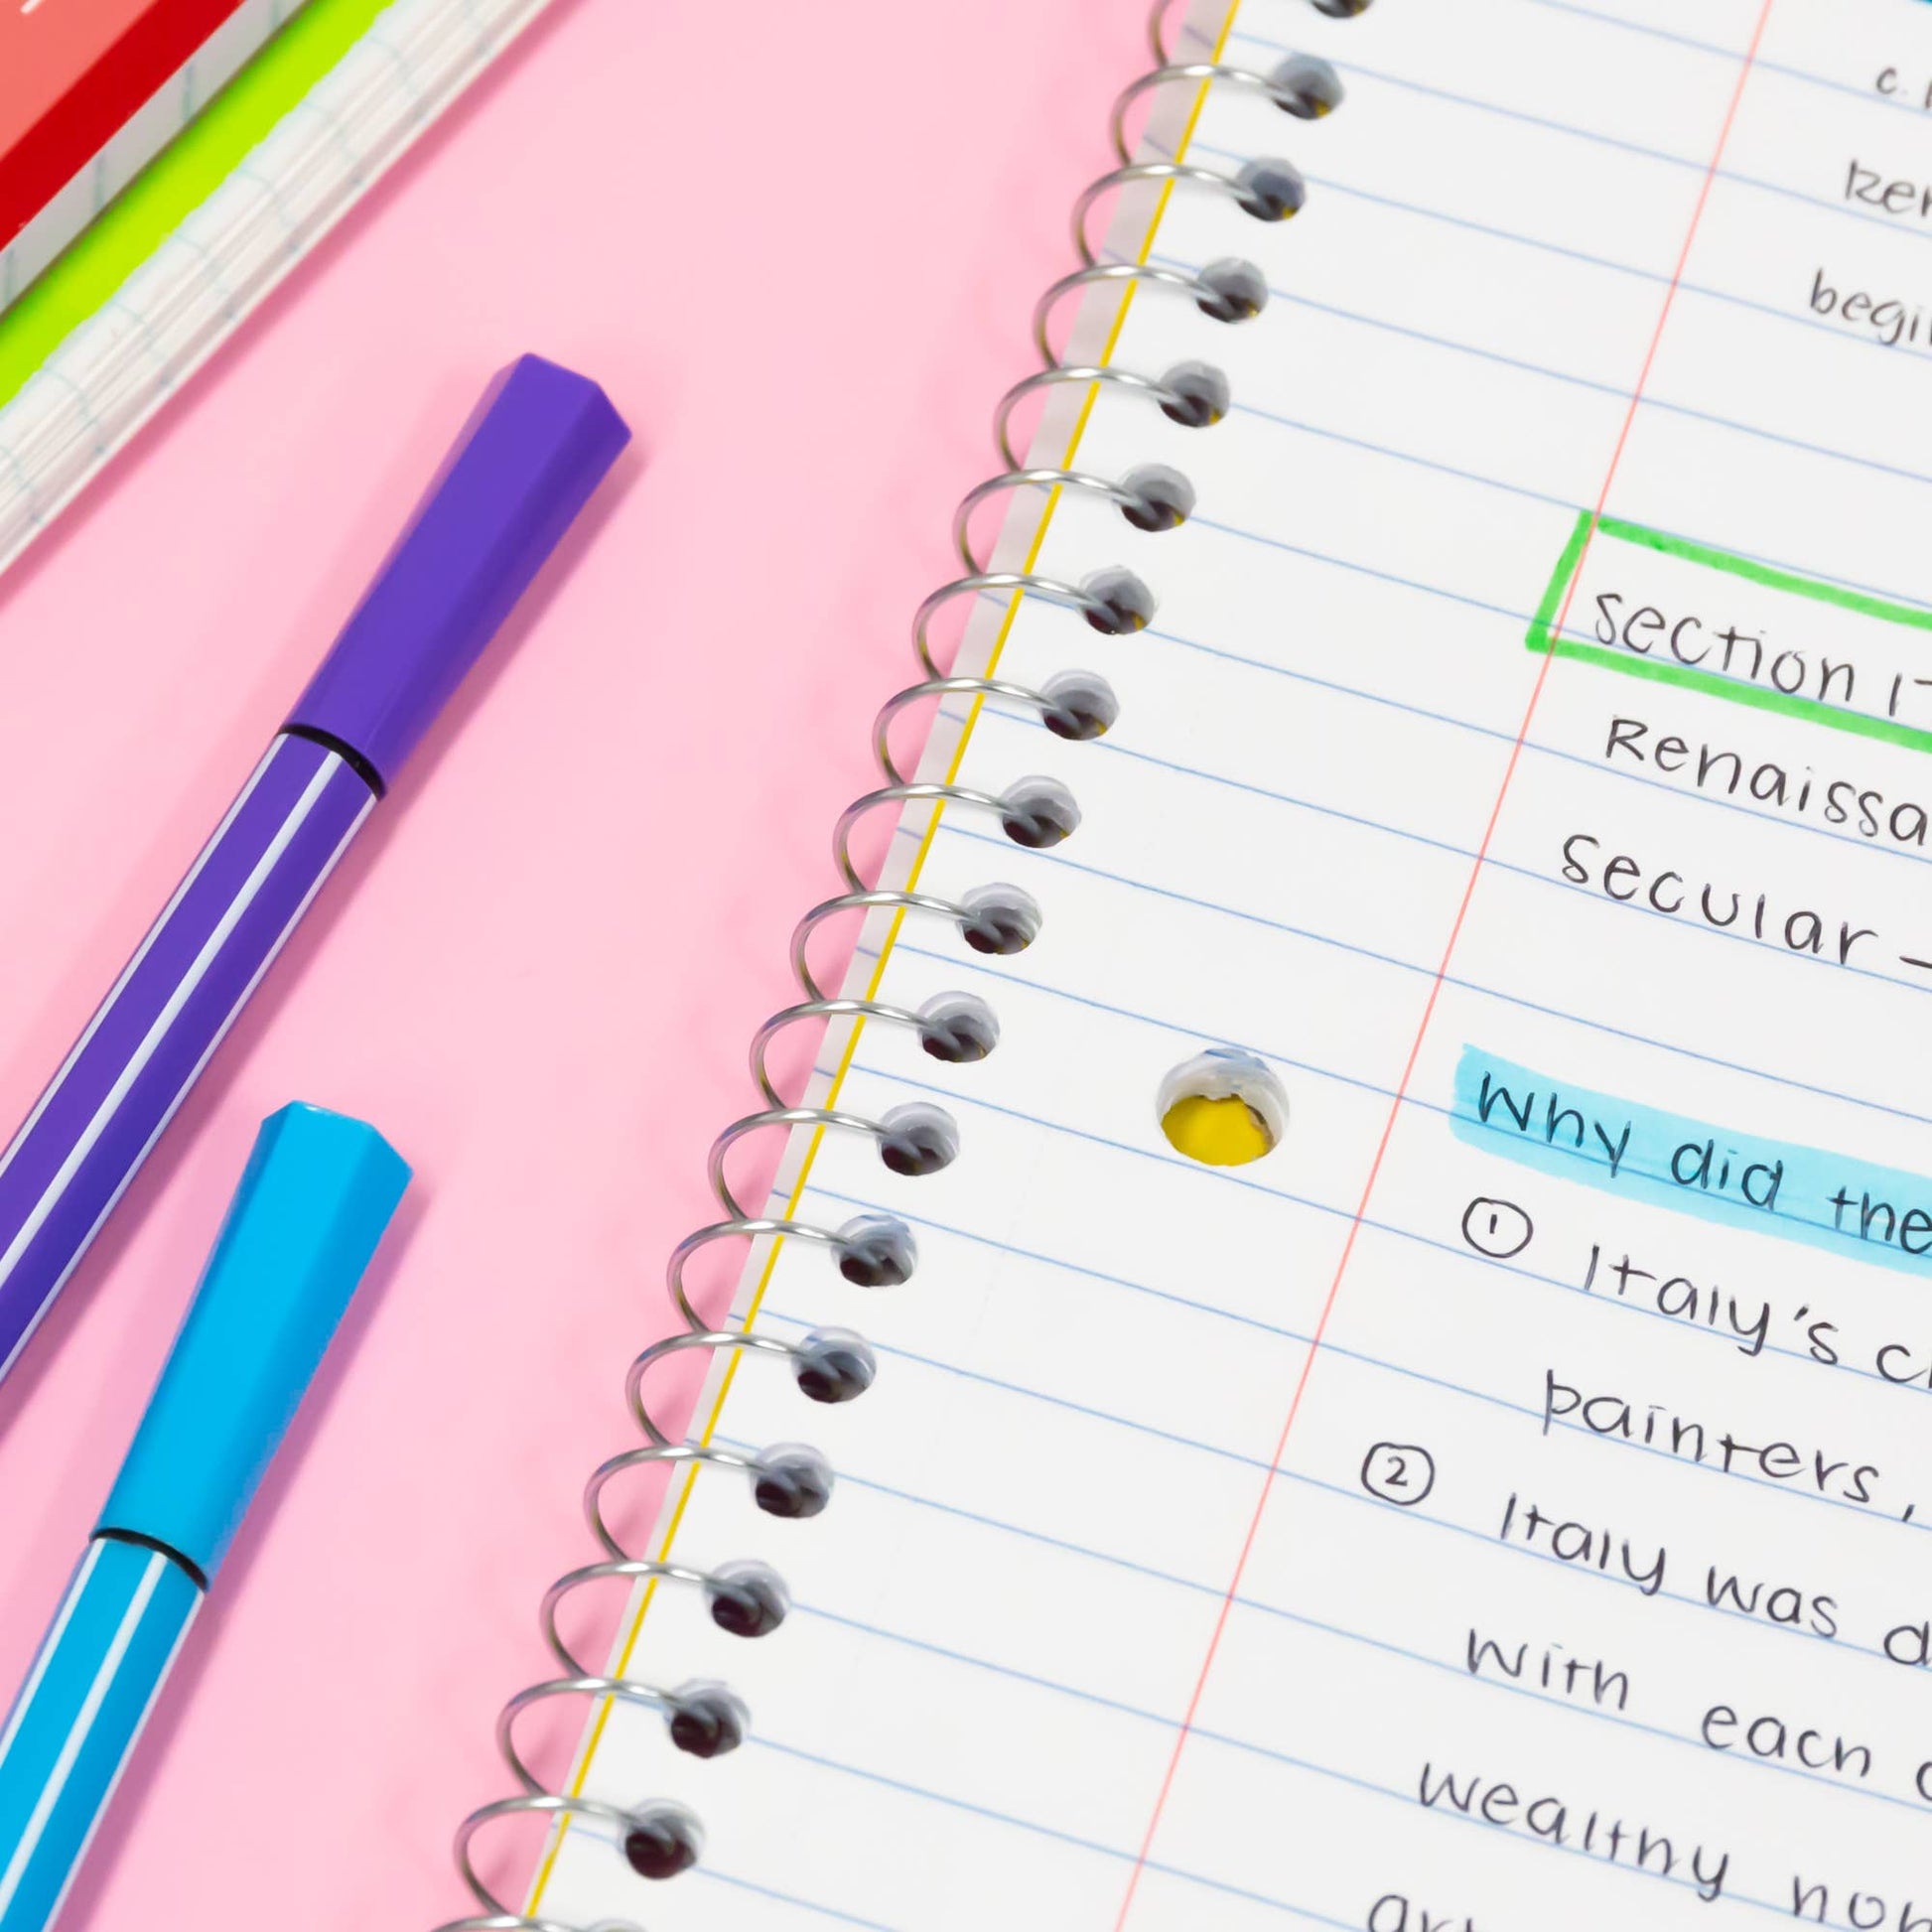 c.
begi
section 1
Renaissa
secular –
Why did the
① Italy's c
painters,
② Italy was d
with each
wealthy no